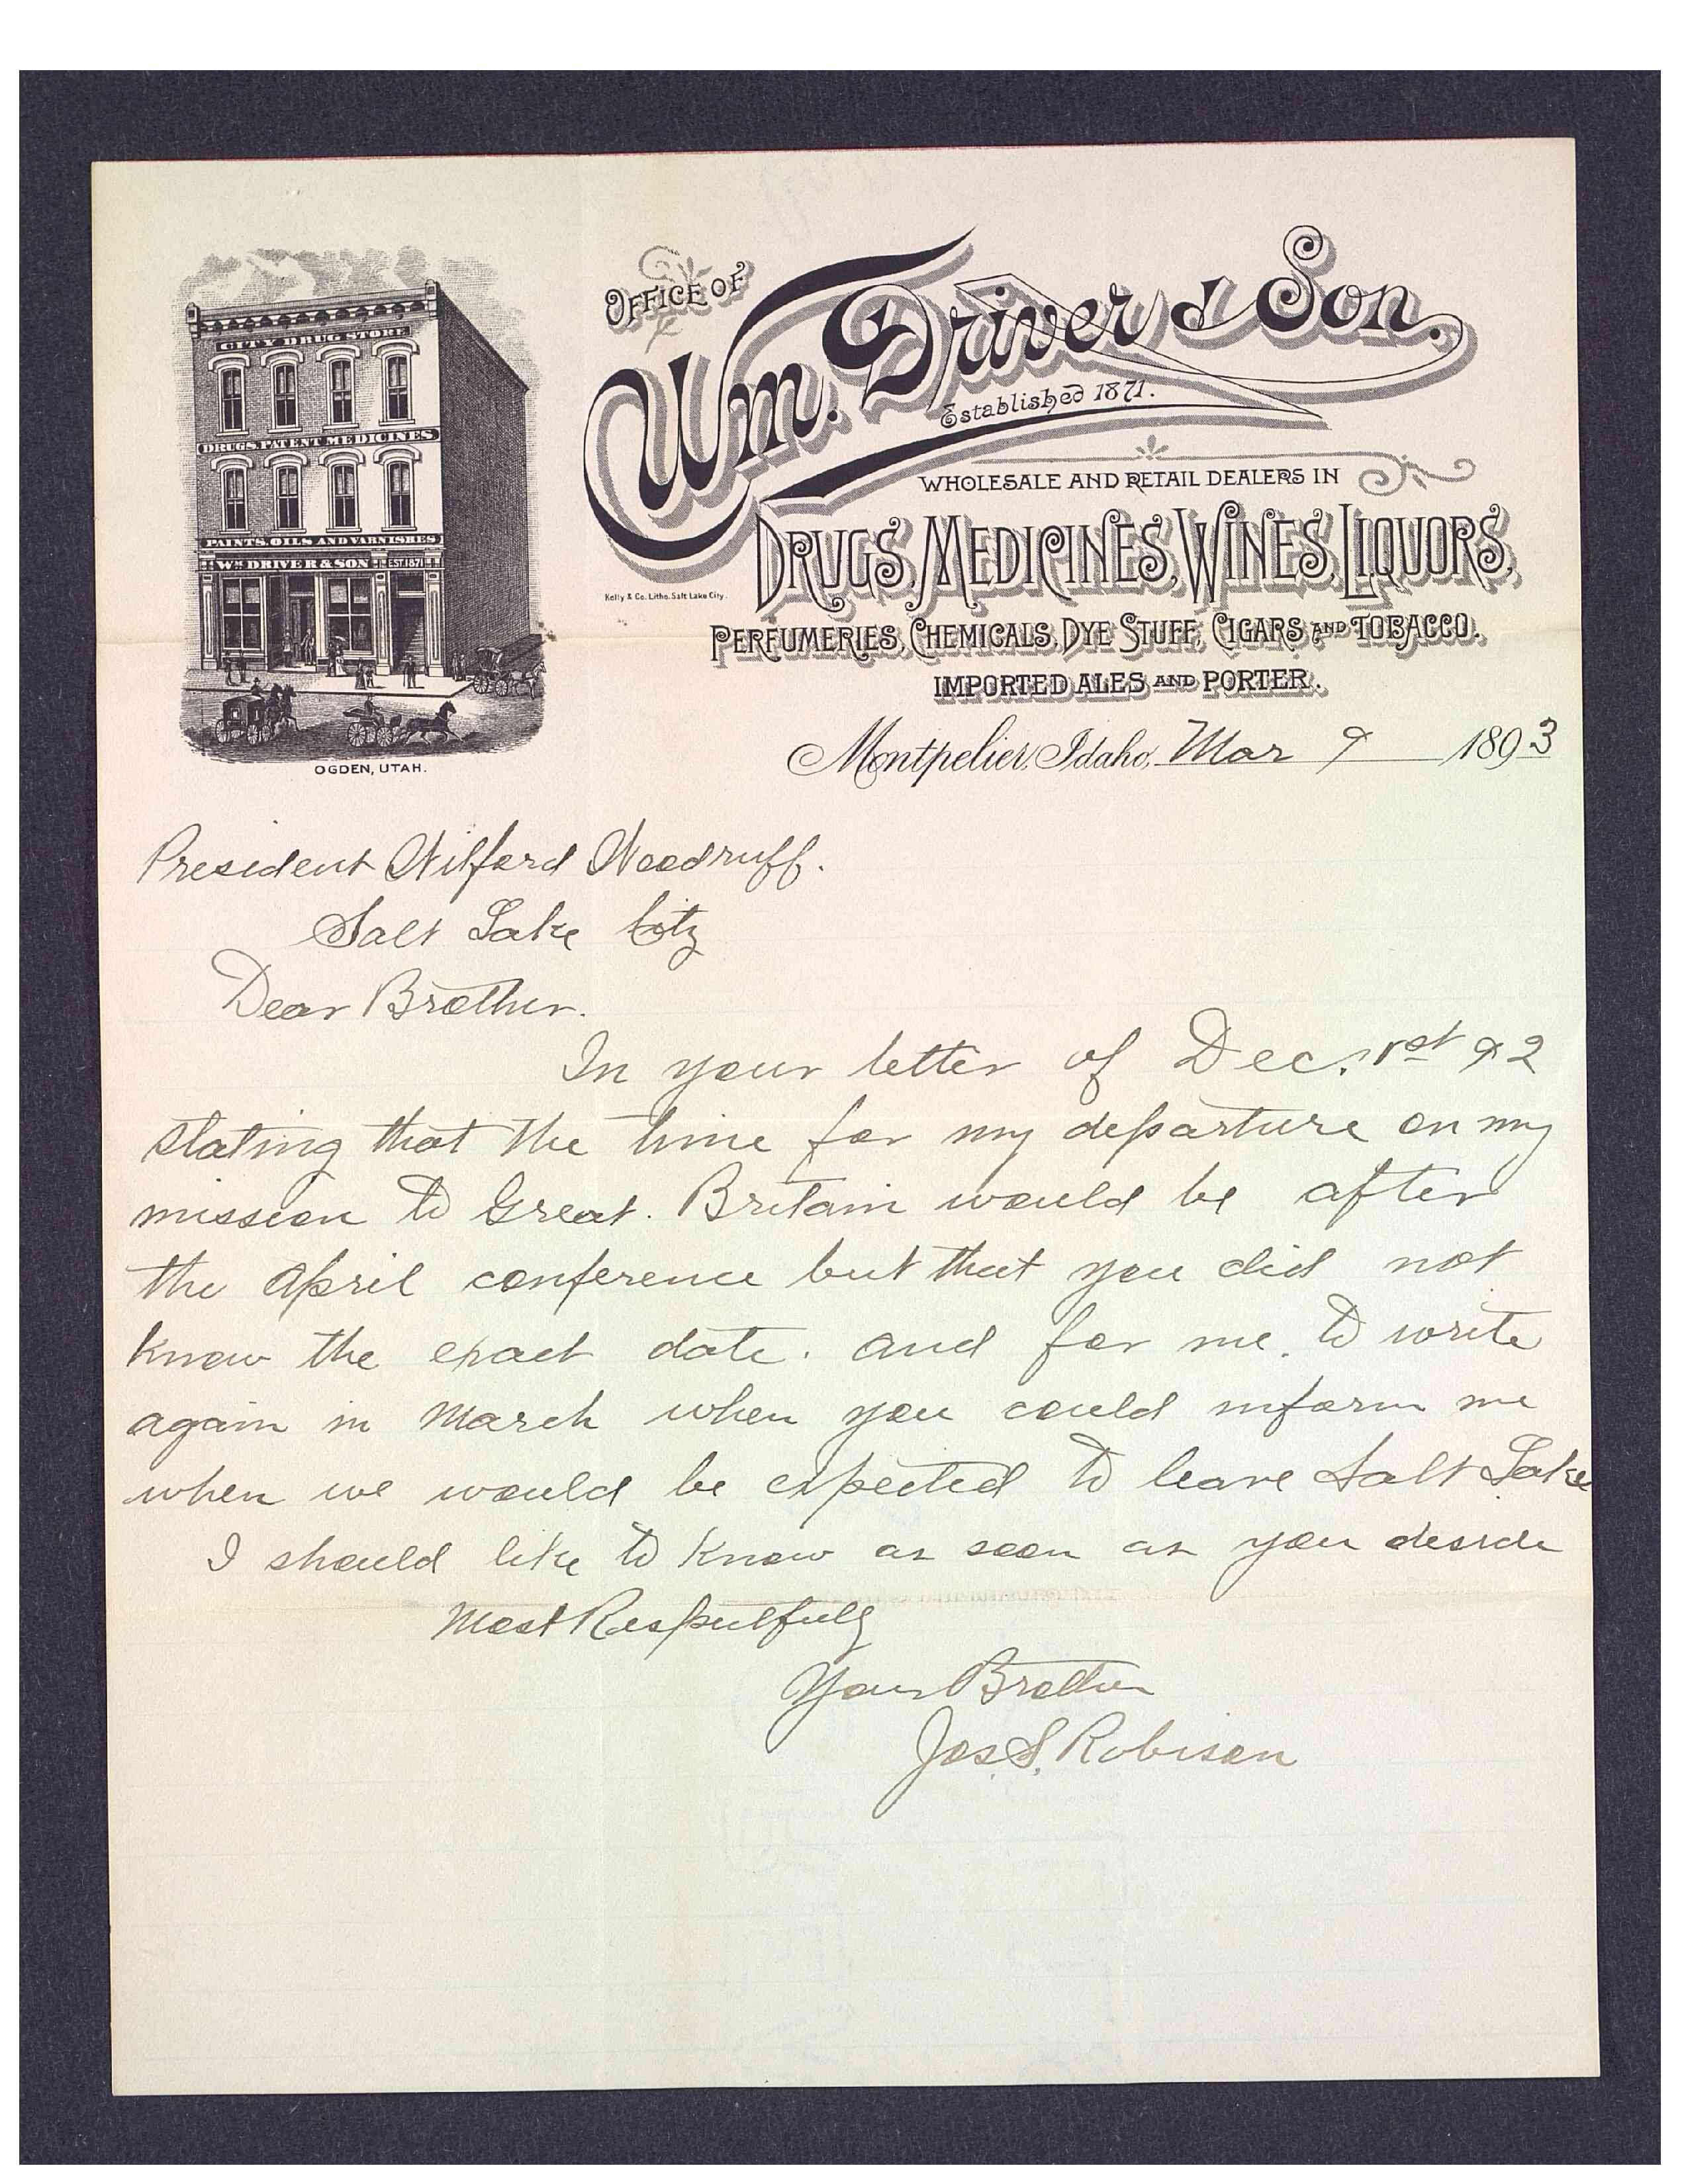 OFFICE OF
Wm. Driver & Son.
Established 1871.
WHOLESALE AND RETAIL DEALERS IN
DRUGS, MEDICINES, WINES, LIQUORS,
PERFUMERIES, CHEMICALS, DYE STUFF, CIGARS AND TOBACCO.
IMPORTED ALES AND PORTER.
CITY DRUG STORE
DRUGS, PATENT MEDICINES
PAINTS, OILS AND VARNISHES
WM DRIVER & SON EST. 1871
Kelly & Co. Litho. Salt Lake City.
OGDEN, UTAH.
Montpelier, Idaho, Mar 9 1893
President Wilford Woodruff.
Salt Lake City
Dear Brother.
In your letter of Dec. 1st 92
stating that the time for my departure on my
mission to Great. Britain would be after
the April conference but that you did not
know the exact date. and for me. to write
again in March when you could inform me
when we would be expected to leave Salt Lake
I should like to know as soon as you deside
Most Respectfully
Your Brother
Jos. S. Robison